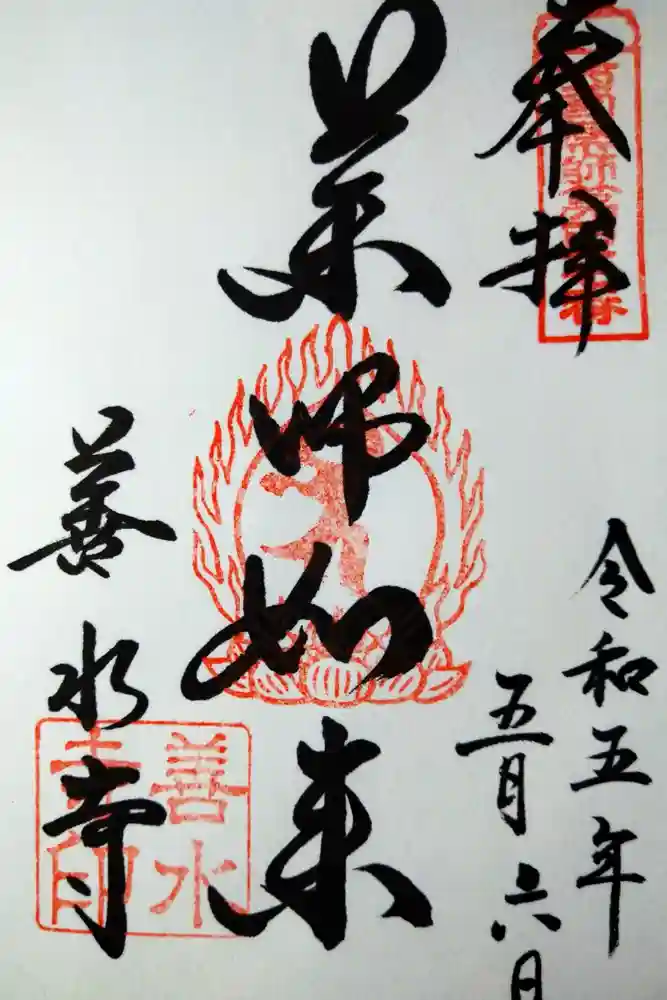 奉拝
令和五年
五月六日
薬師如来
善水寺
善水
寺印